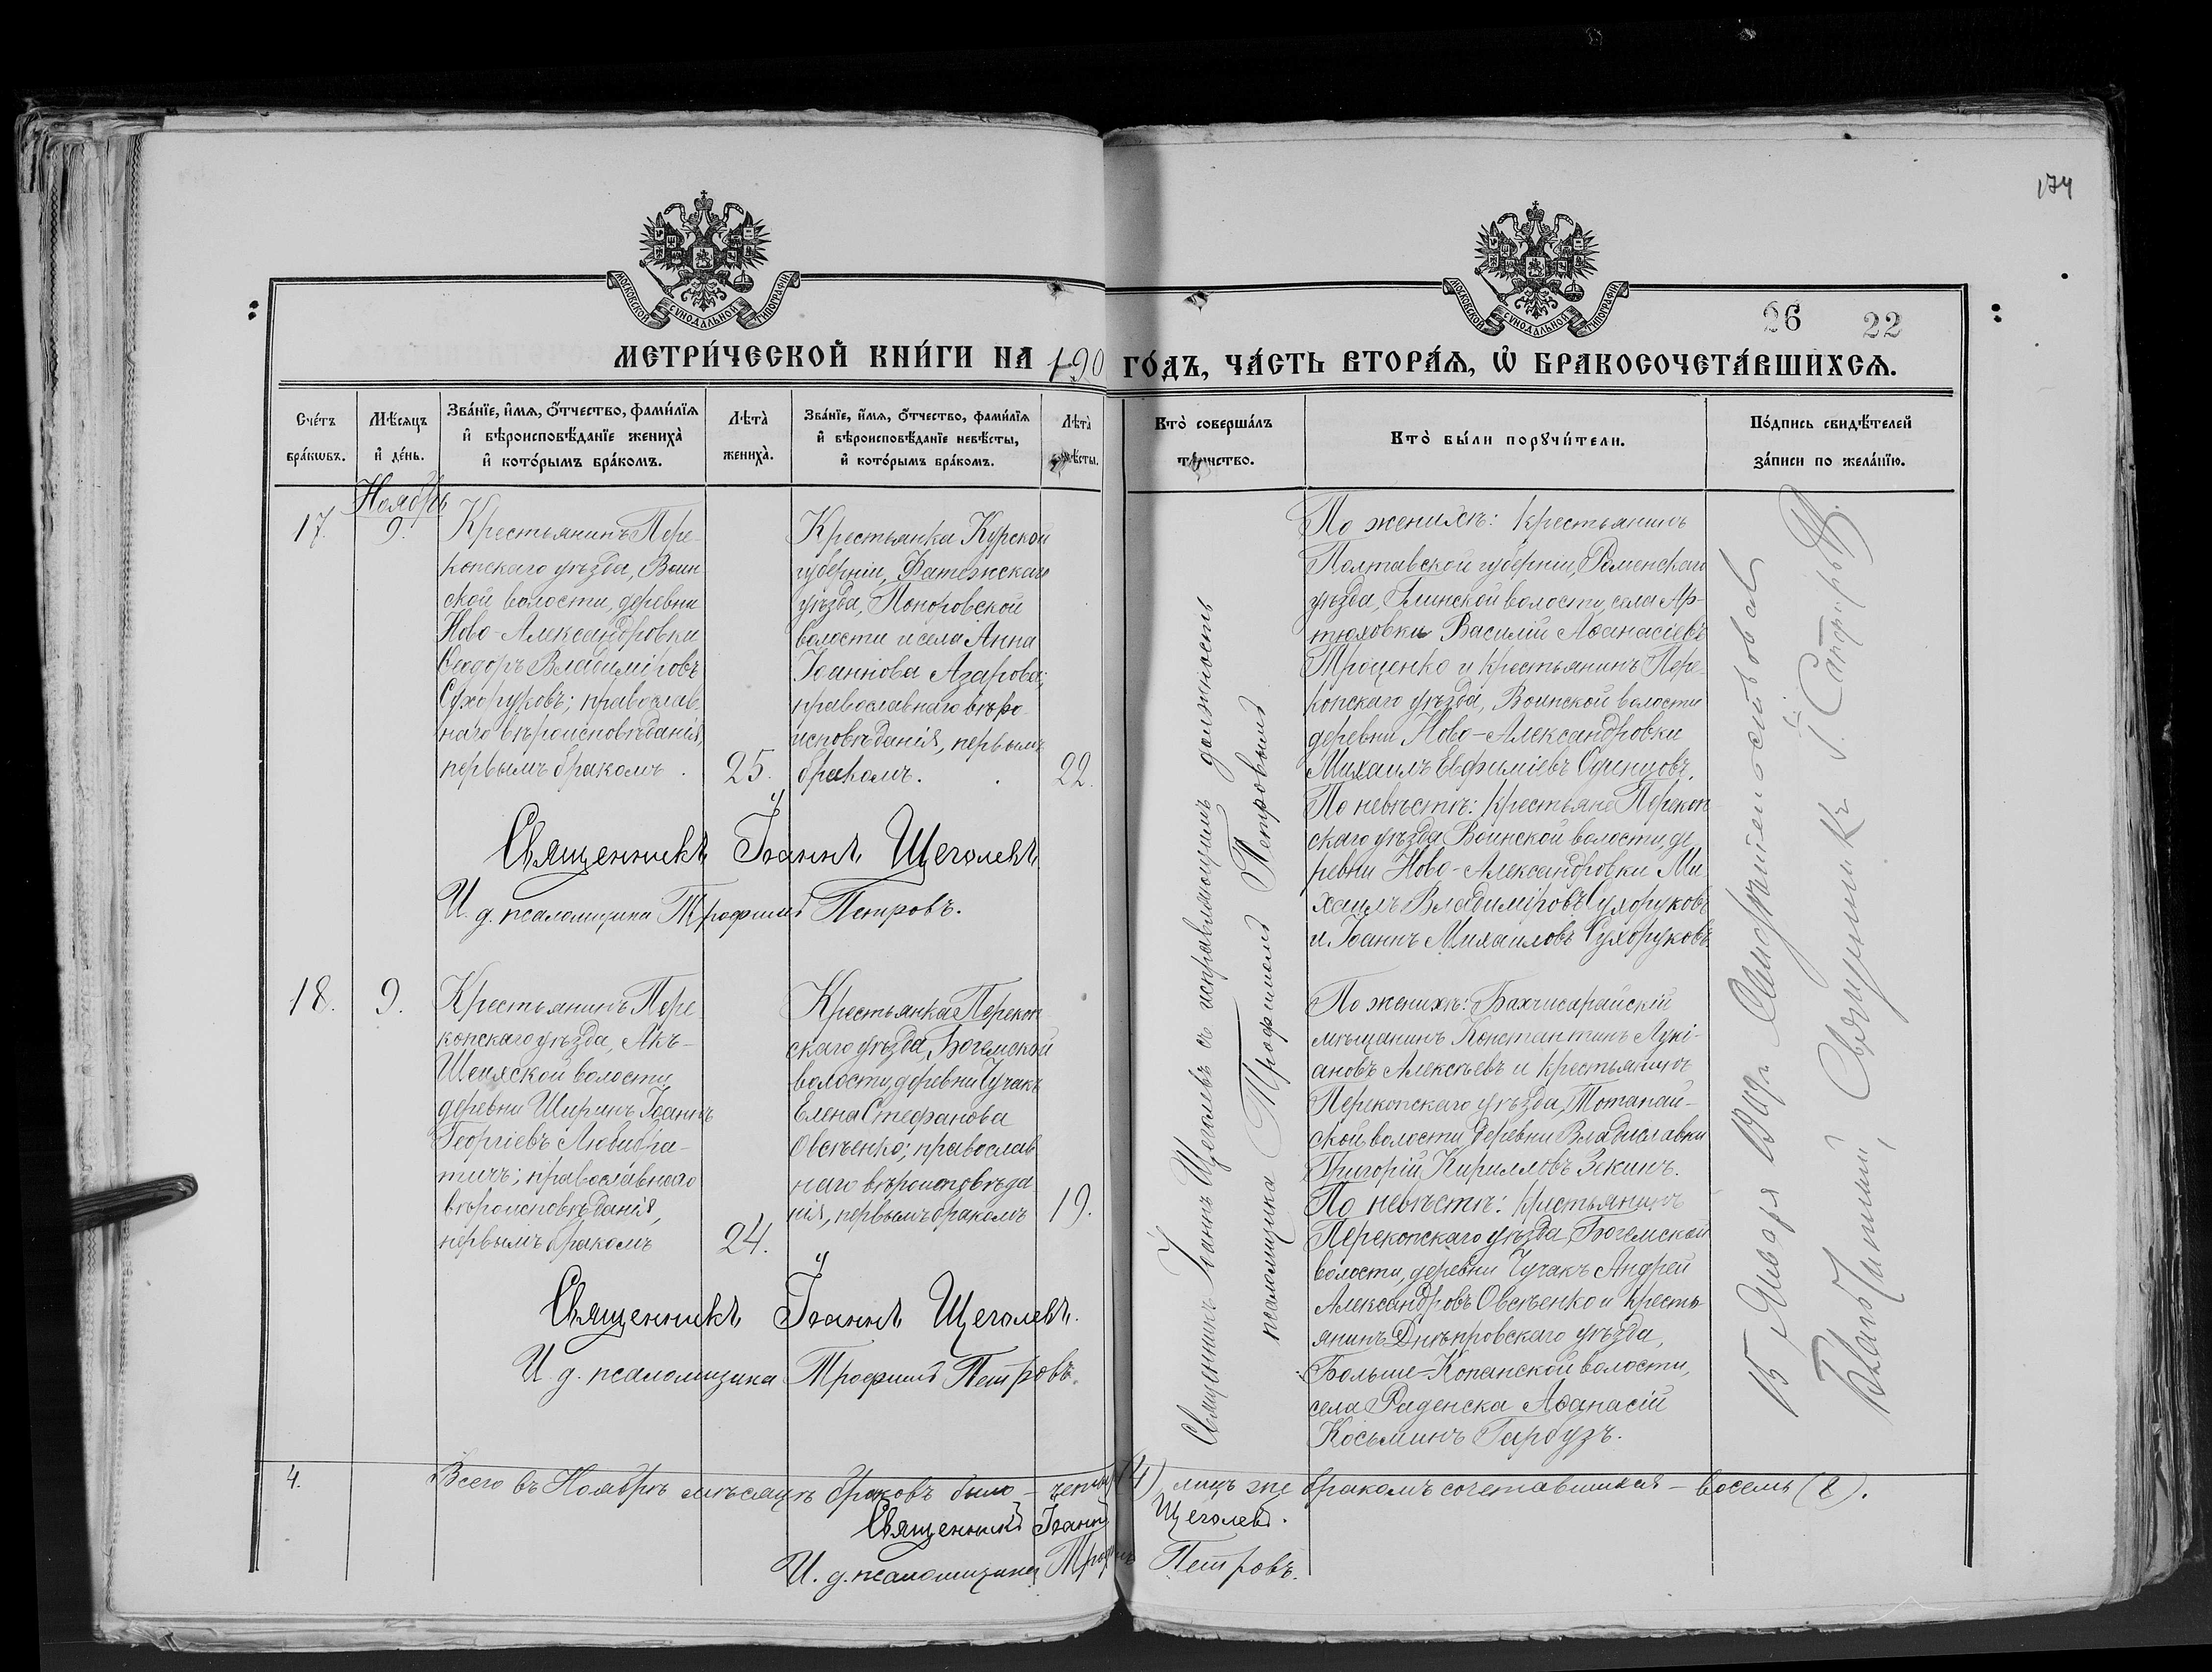 174
МОСКОВСКОЙ СѴНОДАЛЬНОЙ ТИПОГРАФІИ
МОСКОВСКОЙ СѴНОДАЛЬНОЙ ТИПОГРАФІИ
26 22
МЕТРИ́ЧЕСКОЙ КНИ́ГИ НА 190 ГО́ДЪ, ЧА́СТЬ ВТОРА́Ѧ, Ѽ БРАКОСОЧЕТА́ВШИХСѦ.
Сче́тъ бра́кѡвъ.
Мѣ́сяцъ и де́нь.
Зва́нїе, и́мѧ, ѻ́тчество, фами́лїѧ и вѣроисповѣ́данїе жениха̀ и кото́рымъ бра́комъ.
Лѣта̀ жениха̀.
Зва́нїе, и́мѧ, ѻ́тчество, фами́лїѧ и вѣроисповѣ́данїе невѣ́сты, и кото́рымъ бра́комъ.
Лѣта̀ невѣ́сты.
Кто̀ соверша́лъ та́инство.
Кто̀ бы́ли порꙋчи́тели.
По́дпись свидѣ́телей за́писи по жела́нїю.
Ноябрь
17.
9.
Крестьянинъ Пере-
копскаго уѣзда, Воин
ской волости, деревни
Ново-Александровки
Ѳеодоръ Владиміровъ
Сухоруковъ; православ
наго вѣроисповѣданія,
первымъ бракомъ.
25.
Крестьянка Курской
губерніи, Фатежскаго
уѣзда, Поныровской
волости и села Анна
Іоаннова Азарова;
православнаго вѣро-
исповѣданія, первымъ
бракомъ.
22.
Священникъ Іоаннъ Щеголевъ
И. д. псаломщика Трофимъ Петровъ.
По женихѣ: крестьянинъ
Полтавской губерніи, Роменскаго
уѣзда, Глинской волости, села Ар-
тюховки Василій Аѳанасіевъ
Троценко и крестьянинъ Пере-
копскаго уѣзда, Воинской волости
деревни Ново-Александровки
Михаилъ Евфиміевъ Одинцовъ.
По невѣстѣ: крестьяне Перекоп
скаго уѣзда Воинской волости, де
ревни Ново-Александровки Ми
хаилъ Владиміровъ Сухоруковъ
и Іоаннъ Михаиловъ Сухоруковъ
18.
9.
Крестьянинъ Пере
копскаго уѣзда, Акъ-
Шеихской волости
деревни Ширинъ Іоаннъ
Георгіевъ Любибра-
тичъ; православнаго
вѣроисповѣданія,
первымъ бракомъ
24.
Крестьянка Перекоп
скаго уѣзда, Богемской
волости, деревни Чучакъ
Елена Стефанова
Овсѣенко; православ
наго вѣроисповѣда
нія, первымъ бракомъ
19.
Священникъ Іоаннъ Щеголевъ.
И. д. псаломщика Трофимъ Петровъ.
По женихѣ: Бахчисарайскій
мѣщанинъ Константинъ Лукі-
ановъ Алексѣевъ и крестьянинъ
Перекопскаго уѣзда, Тотанай-
ской волости, деревни Владиславки
Григорій Кирилловъ Зекинъ.
По невѣстѣ: крестьянинъ
Перекопскаго уѣзда, Богемской
волости, деревни Чучакъ Андрей
Александровъ Овсѣенко и кресть
янинъ Днѣпровскаго уѣзда,
Больше-Копанской волости,
села Раденска Аѳанасій
Косьминъ Гарбузъ.
Священникъ Іоаннъ Щеголевъ съ исправляющимъ должность
псаломщика Трофимомъ Петровымъ
15 Января
Благочинный, Священникъ
4.
Всего въ Ноябрѣ мѣсяцѣ браковъ было – четыре (4), лицъ же бракомъ сочетавшихся – восемь (8).
Священникъ Іоаннъ Щеголевъ.
И. д. псаломщика Трофимъ Петровъ.